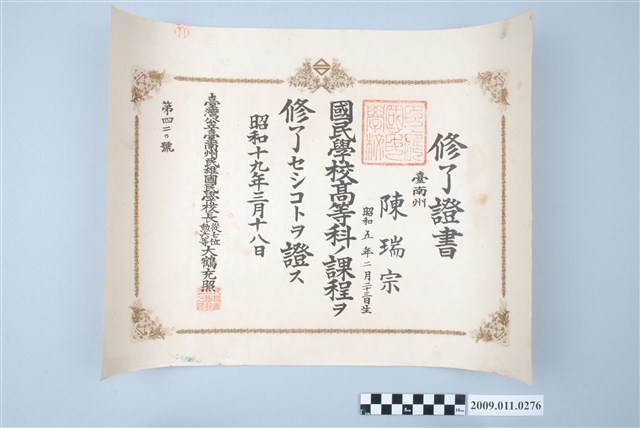 修了證書
臺南州
陳瑞宗
昭和五年二月二十三日生
國民學校高等科ノ課程ヲ
修了セシコトヲ證ス
昭和十九年三月十八日
臺灣公立臺南州民雄國民學校長從七位勲八等大鶴充照
第四二〇號
2009.011.0276